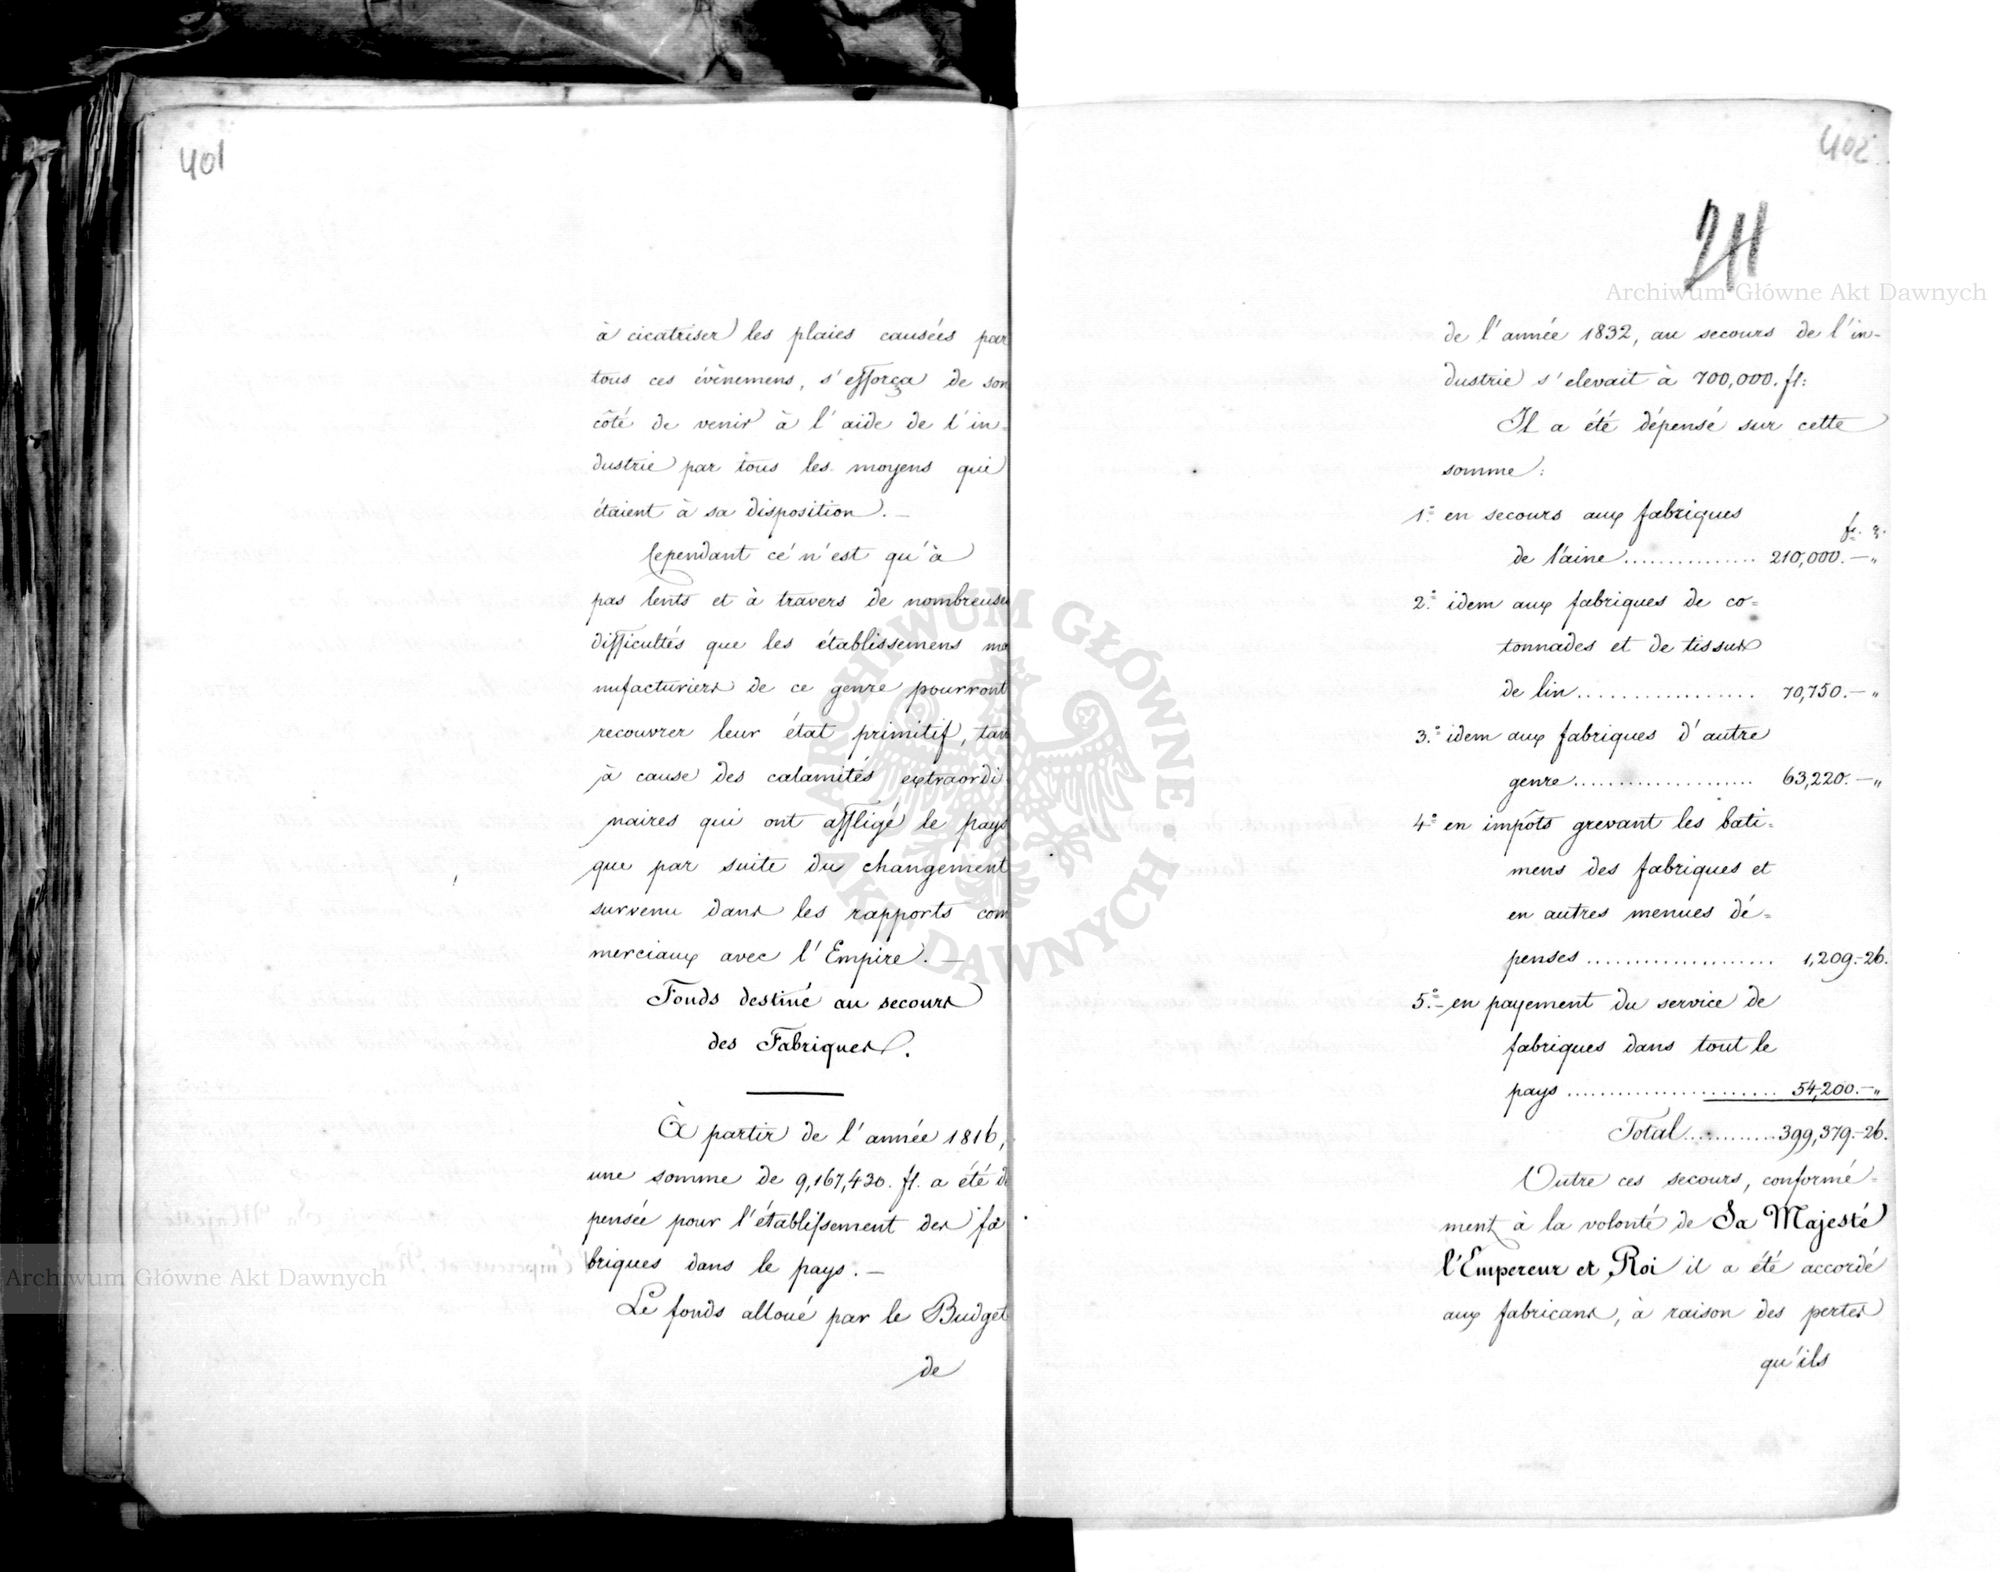 401
à cicatriser les plaies causées par
tous ces évènemens, s'efforça de son
côté de venir à l'aide de l'in-
dustrie par tous les moyens qui
étaient à sa disposition. —
Cependant ce n'est qu'à
pas lents et à travers de nombreuses
difficultés que les établissemens ma
nufacturiers de ce genre pourront
recouvrer leur état primitif, tan
à cause des calamités extraordi
naires qui ont affligé le pays
que par suite du changement
survenu dans les rapports com
merciaux avec l'Empire. —
Fonds destiné au secours
des Fabriques.
À partir de l'année 1816,
une somme de 9,167,430. fl. a été dé
pensée pour l'établissement des fa
briques dans le pays. —
Le fonds alloué par le Budget
de
402
211
de l'année 1832, au secours de l'in-
dustrie s'elevait à 700,000. fl:
Il a été dépensé sur cette
somme:
1.º en secours aux fabriques
fl. g.
de laine ............... 210,000.— „
2.º idem aux fabriques de co=
tonnades et de tissus
de lin .................. 70,750.— „
3.º idem aux fabriques d'autre
genre .................... 63,220.— „
4.º en impôts grevant les bati=
mens des fabriques et
en autres menues dé=
penses .................... 1,209.-26.
5.º en payement du service de
fabriques dans tout le
pays ....................... 54,200.— „
Total ............ 399,379.-26.
Outre ces secours, conformé=
ment à la volonté de Sa Majesté
l'Empereur et Roi il a été accordé
aux fabricans, à raison des pertes
qu'ils
Archiwum Główne Akt Dawnych
Archiwum Główne Akt Dawnych
ARCHIWUM GŁÓWNE AKT DAWNYCH